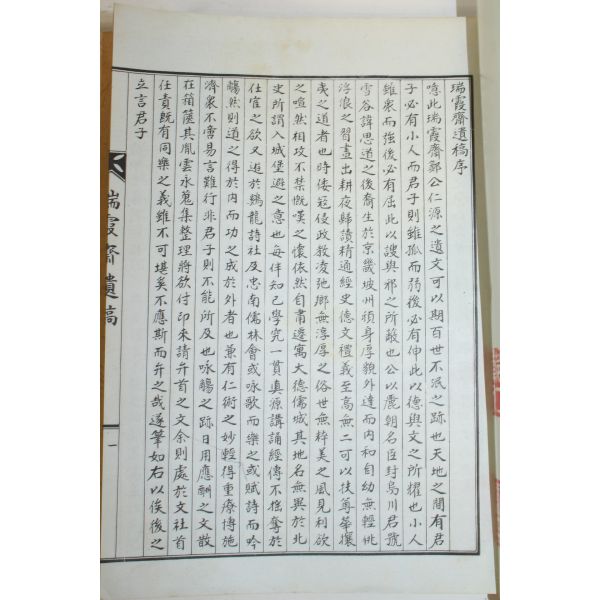 瑞霞齋遺稿序
噫此瑞霞齋鄭公仁源之遺文可以期百世不泯之跡也天地之間有君
子必有小人而君子則雖孤而弱後必有伸此以德與文之所耀也小人
雖衆而強後必有屈此以謏與邪之所敝也公以麗朝名臣封烏川君號
雪谷諱思道之後裔生於京畿坡州頎身厚貌外達而內和自幼無輕佻
浮浪之習晝出耕夜歸讀精通經史德文禮義至高無二可以扶尊華攘
夷之道者也時倭寇侵政教凌弛鄉無淳厚之俗世無粹美之風見利欲
之喧然相攻不禁慨嘆之懷依然自肅邊寓大德儒城其地名無異於北
史所謂入城堡避之意也每伴知己學究一貫眞源講誦經傳不搖奪於
仕宦之欲又遊於鷄龍詩社及忠南儒林會或咏歌而樂之或賦詩而吟
觴然則道之得於內而功之成於外者也兼有仁術之妙輕得重療博施
濟衆不啻易言雖行非君子則不能所及也咏觴之跡日用應酬之文散
在箱篋其胤雲永蒐集整理將欲付印来請弁首之文余則處於文社首
任責旣有同樂之義雖不可堪奚不應斯而弁之哉遂筆如右以俟後之
立言君子
瑞霞齋遺稿
一